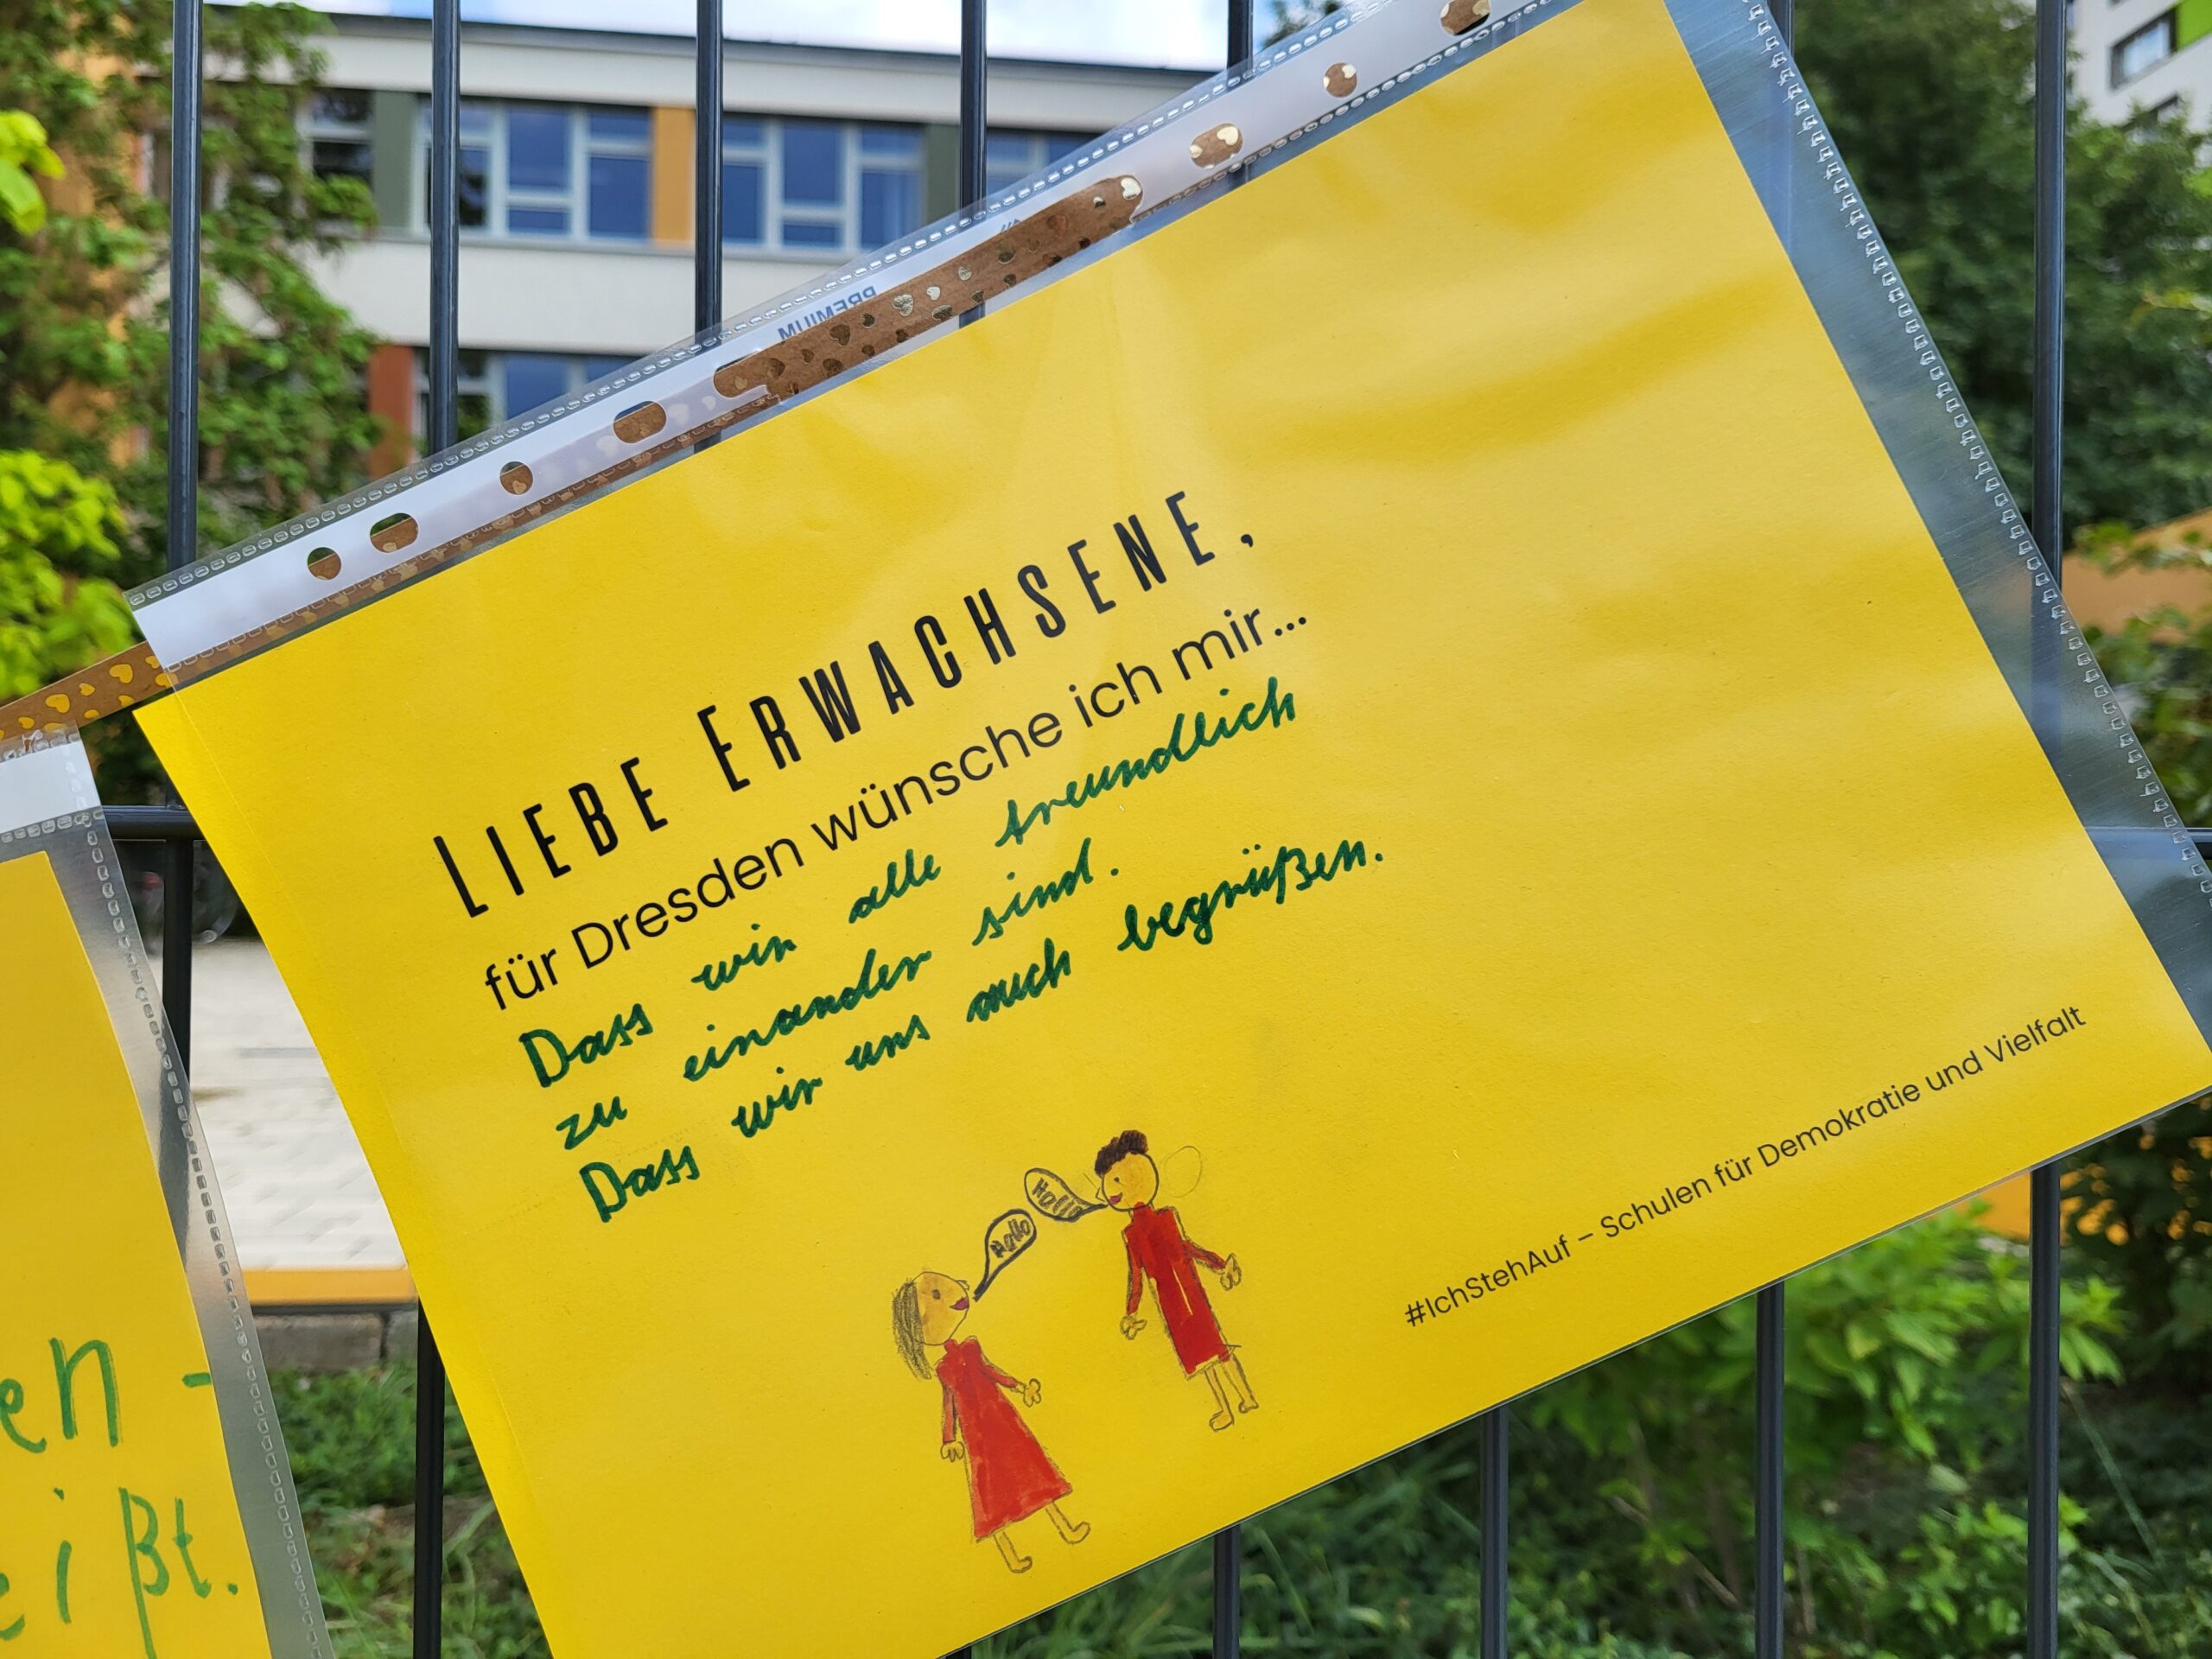 PREMIUM
LIEBE ERWACHSENE,
für Dresden wünsche ich mir...
Dass wir alle freundlich
zu einander sind.
Dass wir uns auch begrüßen.
Hallo
Hallo
#IchStehAuf – Schulen für Demokratie und Vielfalt
en -
eißt.